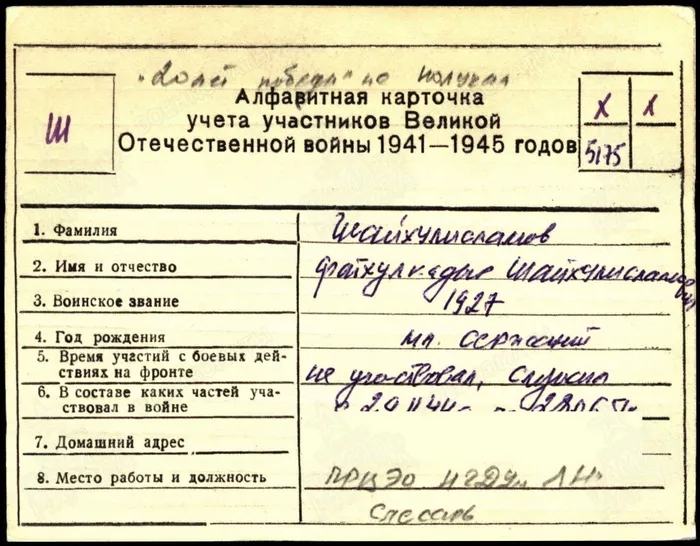 "20 лет победы" не получал
Алфавитная карточка
учета участников Великой
Отечественной войны 1941—1945 годов
Ш
X X
5175
1. Фамилия Шайхулисламов
2. Имя и отчество Шайхулисламович
3. Воинское звание 1927
4. Год рождения мл. сержант
5. Время участий с боевых дей-
ствиях на фронте не участвовал, служил
6. В составе каких частей уча-
ствовал в войне
7. Домашний адрес
8. Место работы и должность НГДУ
Слесарь